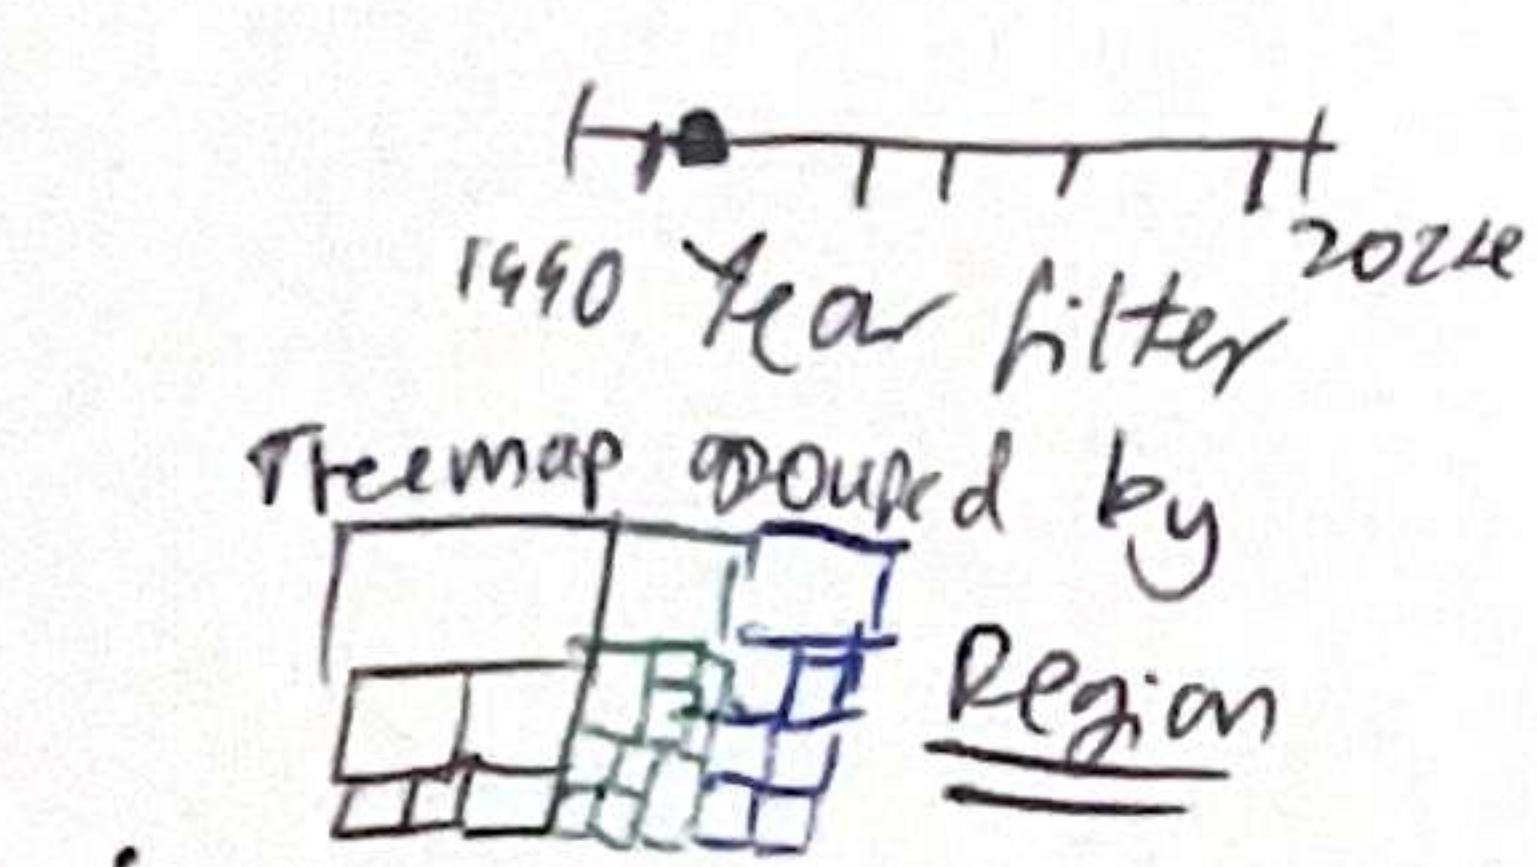 1990 Year filter 2024
Treemap grouped by
Region